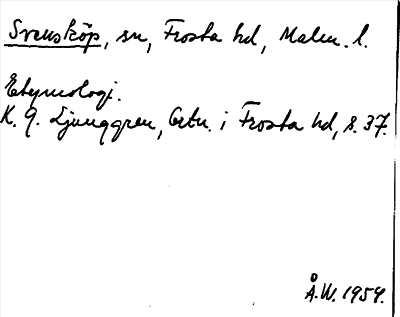 Svensköp, sn, Frosta hd, Malm. l.
Etymologi.
K. G. Ljunggren, Ortn. i Frosta hd, s. 37.
Å.W. 1959.